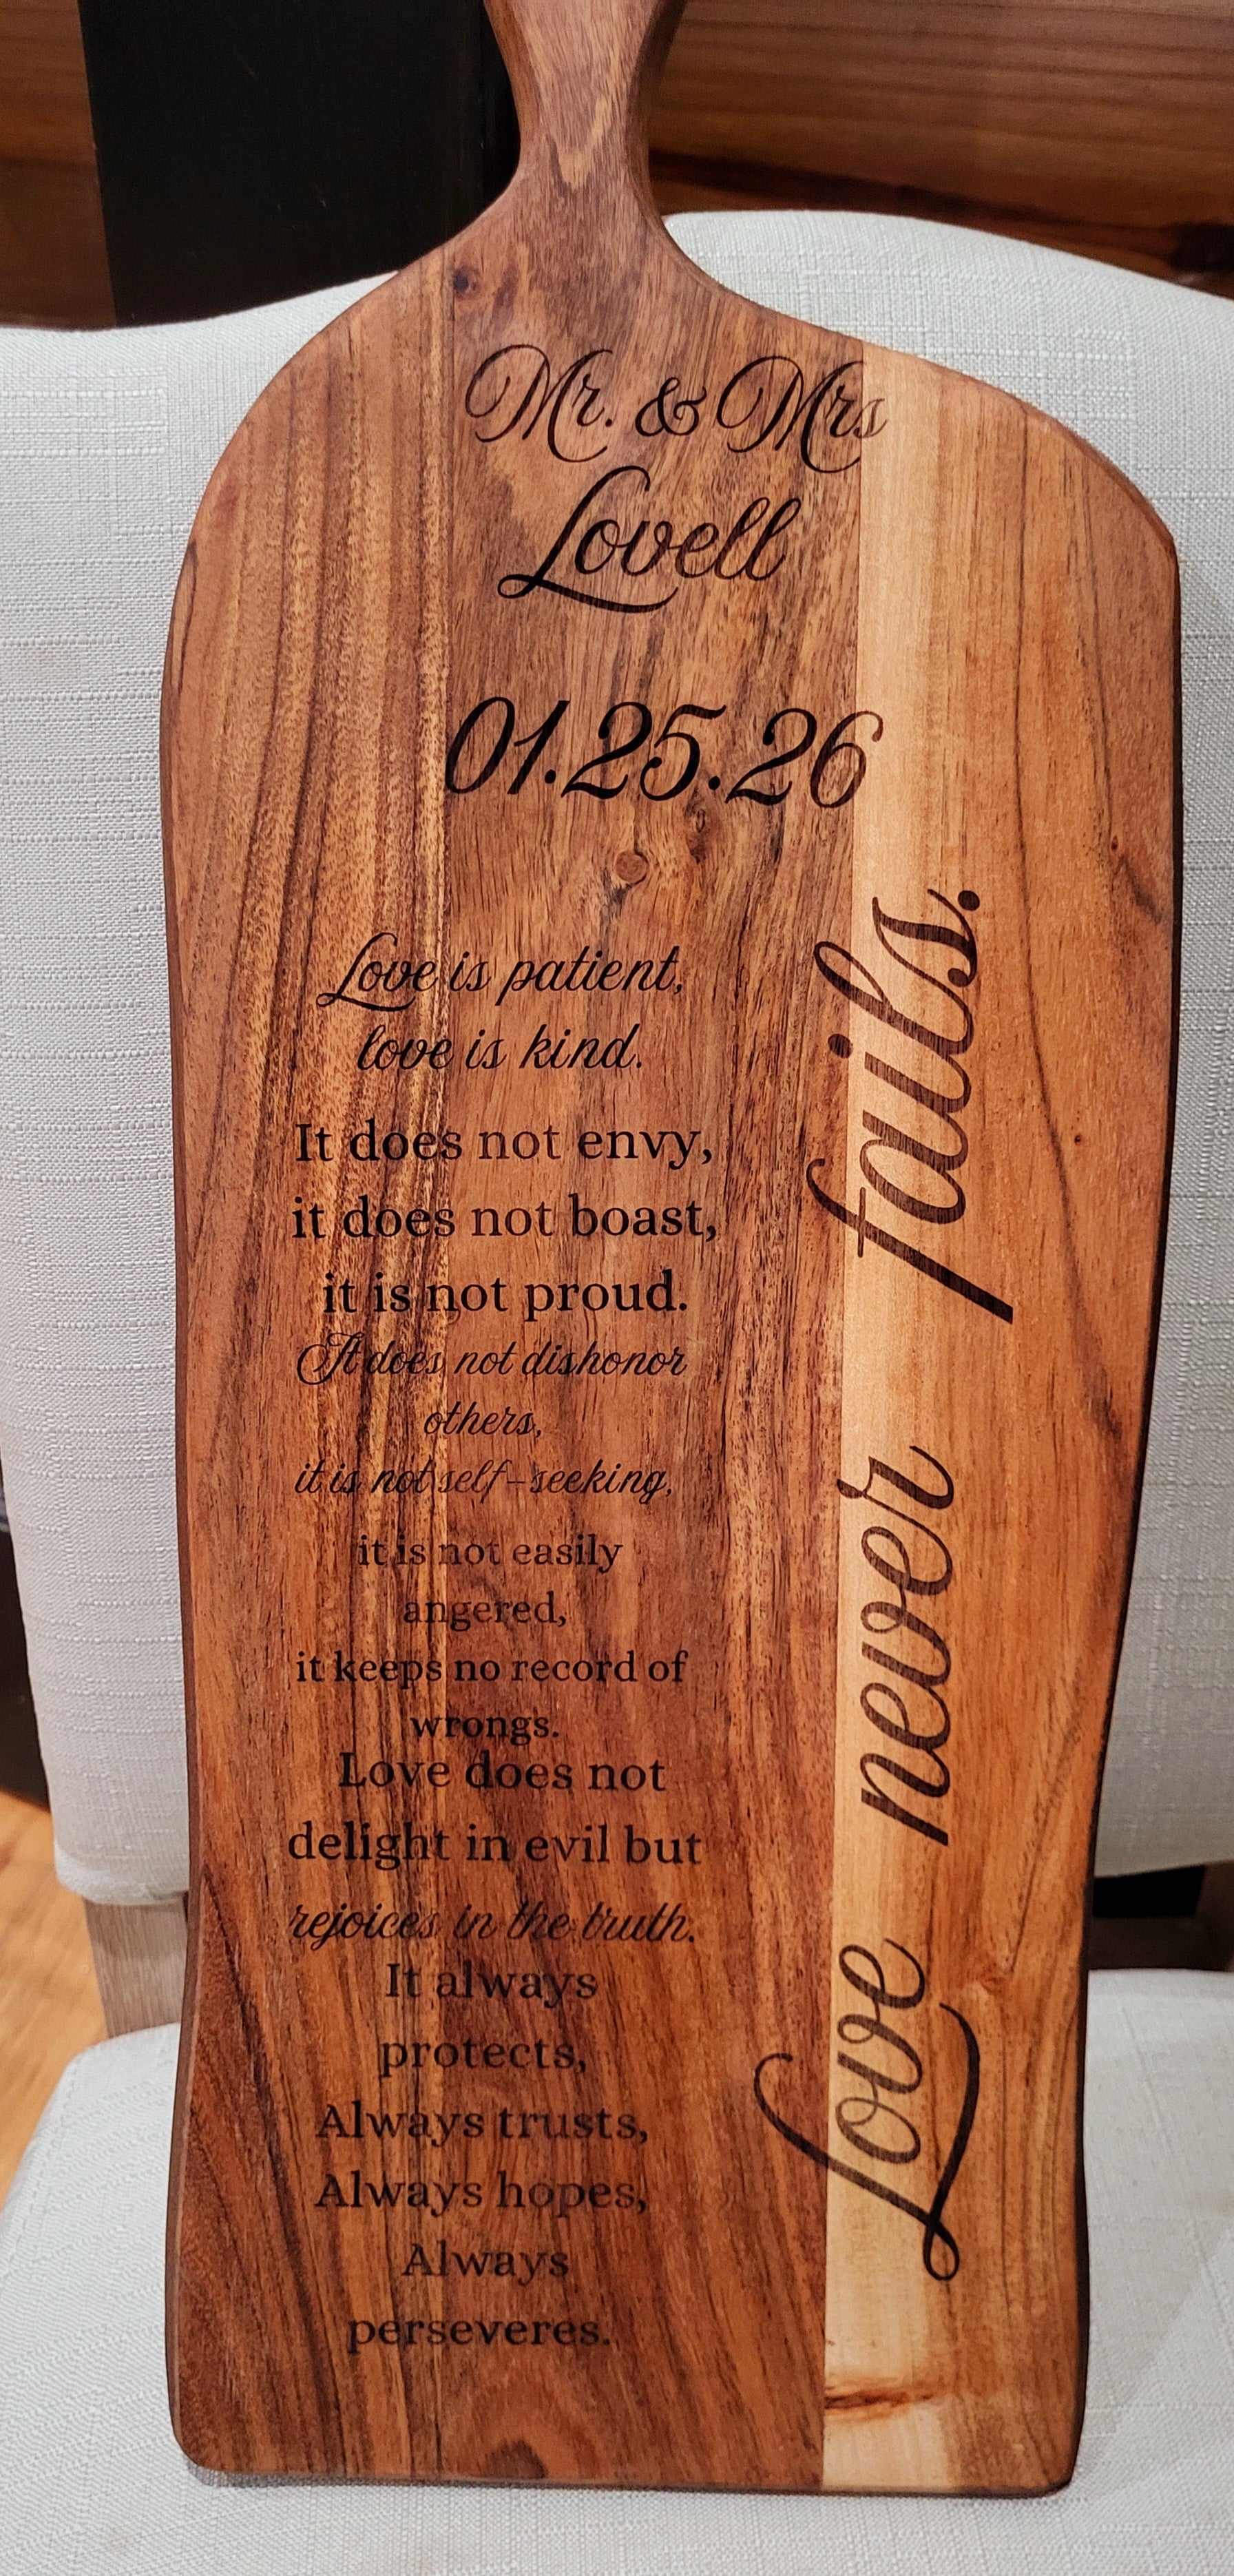 Mr. & Mrs
Lovell
01.25.26
Love is patient,
love is kind.
It does not envy,
it does not boast,
it is not proud.
It does not dishonor
others,
it is not self-seeking,
it is not easily
angered,
it keeps no record of
wrongs.
Love does not
delight in evil but
rejoices in the truth.
It always
protects,
Always trusts,
Always hopes,
Always
perseveres.
Love never fails.